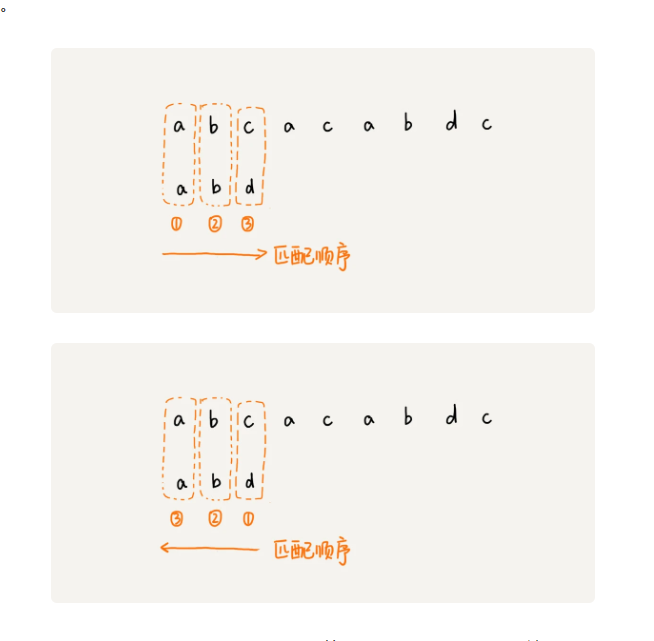 。
a b c a c a b d c
a b d
① ② ③
匹配顺序
a b c a c a b d c
a b d
③ ② ①
匹配顺序